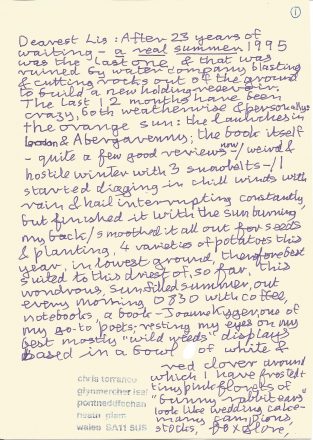 1
Dearest Lis: After 23 years of
waiting - a real summer 1995
was the last one & that was
ruined by water company blasting
& cutting rocks out of the ground
to build a new holding reservoir.
The last 12 months have been
crazy, both weatherwise & personally:
the orange sun: the launches in
London & Abergavenny; the book itself
- quite a few good reviews now / weird &
hostile winter with 3 snowbelts - / I
started digging in chill winds with
rain & hail interrupting constantly
but finished it with the sun burning
my back / smoothed it all out for seeds
& planting, 4 varieties of potatoes this
year in lowest ground, therefore best
suited to this driest of, so far, this
wondrous, sun filled summer, out
every morning 0830 with coffee,
notebooks, a book - Joanne Kyger, one of
my go-to poets; resting my eyes on my
best mostly "wild weeds" displays
based in a bowl of white &
red clover around
which I have frosted
tiny pink flowers of
"bunny rabbit ears"
look like wedding cake -
many campions,
stocks, foxglove,
chris torrance
glynmercher isaf
pontneddfechan
neath glam
wales SA11 5US